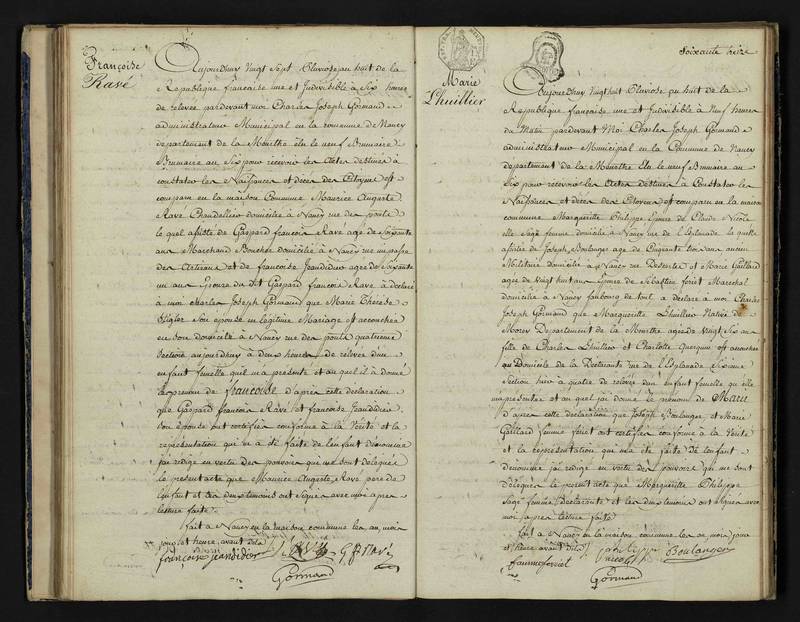 Françoise
Ravé
Aujourdhuy vingt Sept Pluviose an huit de la
Republique francaise une et Indivisible à Six heures
de relevée pardevant moi Charles Joseph Gormand
administrateur Municipal en la commune de Nancy
departement de la Meurthe élu le neuf Brumaire
Brumaire an Six pour recevoir les Actes destinés à
constater les Naissances et décès des Citoyens est
comparu en la maison Commune Maurice Auguste
Ravé Chandellier domicilié à Nancy rue des ponts
le quel assisté de Gaspard francois Ravé agé de Soixante
ans Marchand Boucher domicilié à Nancy rue
des et de francoise Jeandidier agée de Soixante
un ans Epouse du dit Gaspard francois Ravé à declaré
à moi Charles Joseph Gormand que Marie Therese
son épouse en légitime Mariage est accouchée
en son domicile à Nancy rue des ponts quatrieme
Section aujourdhuy à deux heures de relevée d'un
enfant femelle quil m'a presenté et au quel il à donné
le prenom de francoise d'après cette declaration
que Gaspard francois Ravé et francoise Jeandidier
Son épouse ont certifiée conforme à la Verité et la
representation qui m'a été faite de lenfant dénommé
jai redigé en vertu des pouvoirs qui me sont délégués
le present acte que Maurice Auguste Ravé pere de
lenfant et les deux temoins ont Signés avec moi apres
lecture faite
fait à Nancy en la maison commune les an, mois
jour et heure avant dits
françoise jeandidier G F Ravé
Gormand
Soixante treize
Marie
Lhuillier
Aujourdhuy vingt huit Pluviose an huit de la
Republique francaise une et Indivisible à Neuf heures
du Matin pardevant Moi Charles Joseph Gormand
administrateur Municipal en la Commune de Nancy
departement de la Meurthe Elu le neuf Brumaire an
Six pour recevoir les Actes destinés à Constater les
Naissances et décès des Citoyens est comparu en la maison
commune Marguerite Philippe Epouse de Claude Nicolas
elle Sage femme domiciliée à Nancy rue de l'Esplanade la quelle
assistée de Joseph Boulanger agé de Cinquante ans ancien
Militaire domicilié à Nancy rue et Marie Gaillard
agée de vingt huit ans Epouse de Sébastien foriet Marechal
domicilié à Nancy faubourg de toul a déclaré à moi Charles
Joseph Gormand que Marguerite Lhuillier Native de
Departement de la Meurthe agée de vingt Six ans
fille de Charles Lhuillier et Charlotte est accouchée
au Domicile de la Declarante rue de l'Esplanade Sixieme
Section hier à quatre de relevée dun Enfant femelle quelle
m'a presenté et au quel jai donné le prénom de Marie
d'après cette declaration que Joseph Boulanger et Marie
Gaillard femme foriet ont certifiée conforme à la Verité
et la représentation qui m'a été faite de lenfant
dénommé jai redigé en vertu des pouvoirs qui me sont
délégués le present acte que Marguerite Philippe
Sage femme Declarante et les deux temoins ont Signés avec
moi apres lecture faite
fait à Nancy en la maison commune les an, mois, jour
et heure avant dits
philippe Boulanger
Gormand